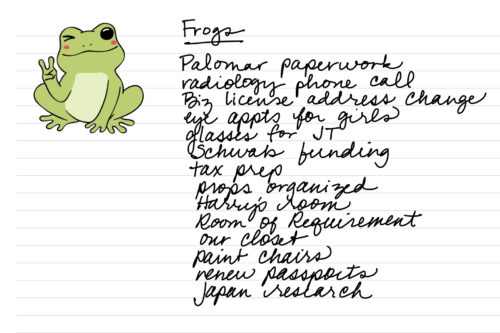 Frogs
Palomar paperwork
radiology phone call
Biz license address change
eye appts for girls
glasses for JT
Schwab funding
tax prep
props organized
Harry's room
Room of Requirement
our closet
paint chairs
renew passports
Japan research